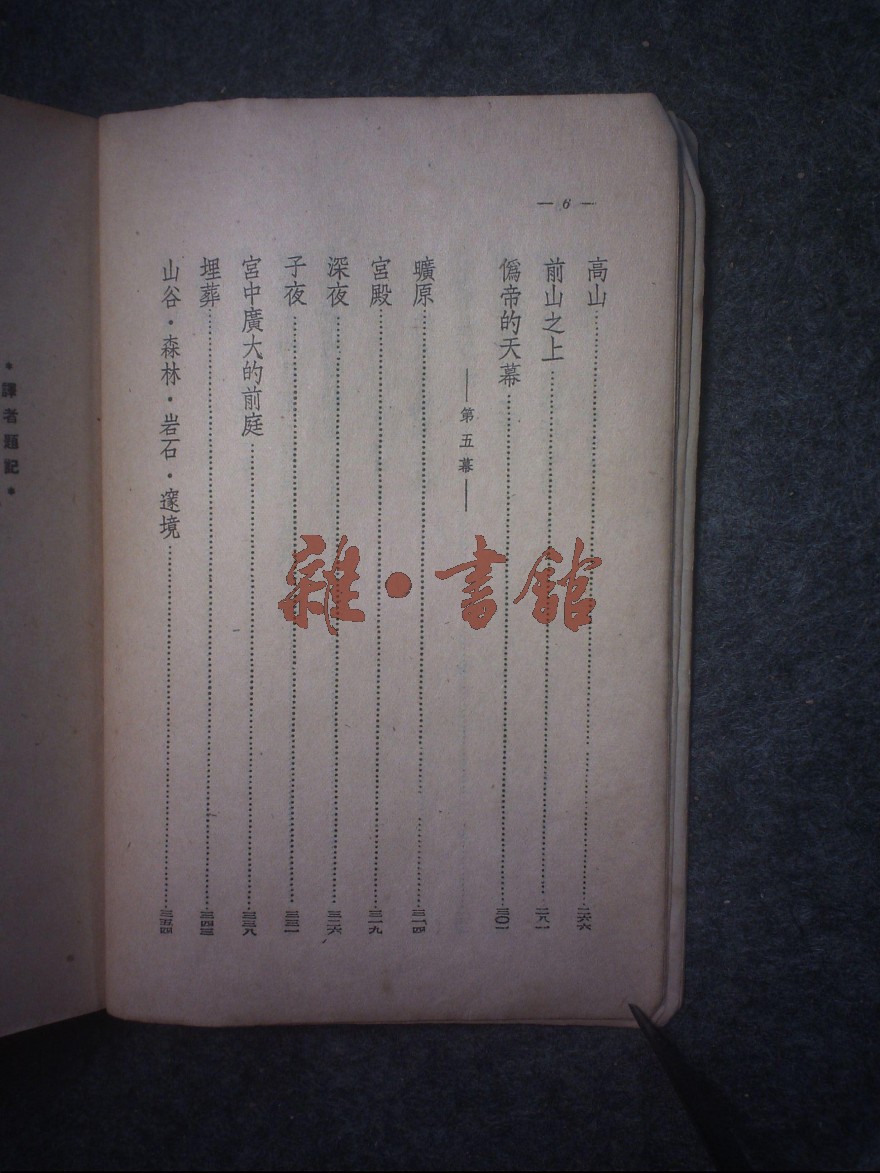 — 6 —
高山……二六六
前山之上……二八一
僞帝的天幕……三〇一
——第五幕——
曠原……三一四
宮殿……三一九
深夜……三二六
子夜……三三一
宮中廣大的前庭……三三八
埋葬……三四三
山谷・森林・岩石・邃境……三五四
・譯者題記・
雜・書館